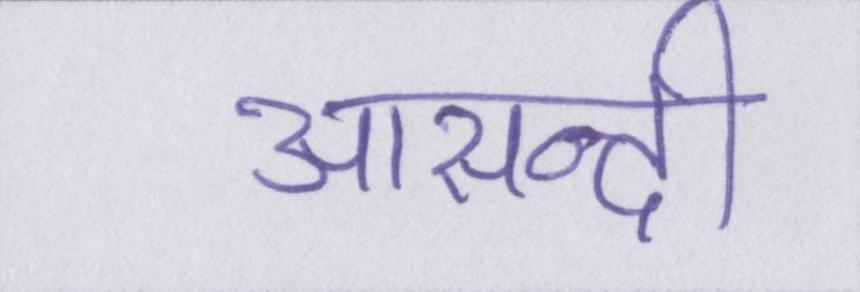 आसन्दी